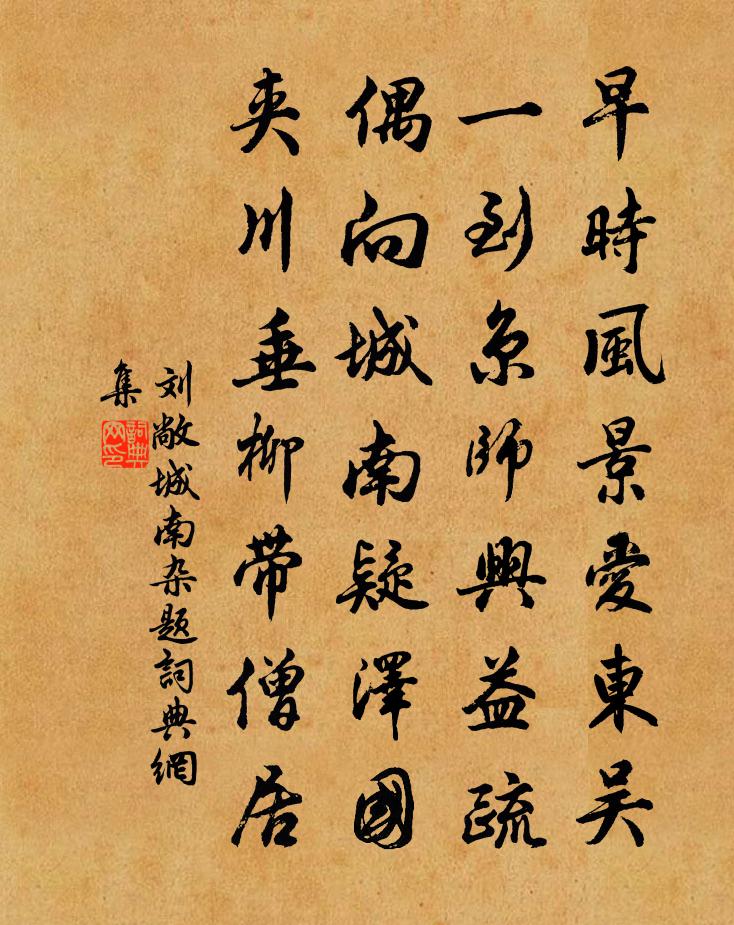 早時風景愛東吴
一到京師興益疏
偶向城南疑澤國
夾川垂柳帶僧居
刘敞城南杂题詞典網
集
詞典
网印